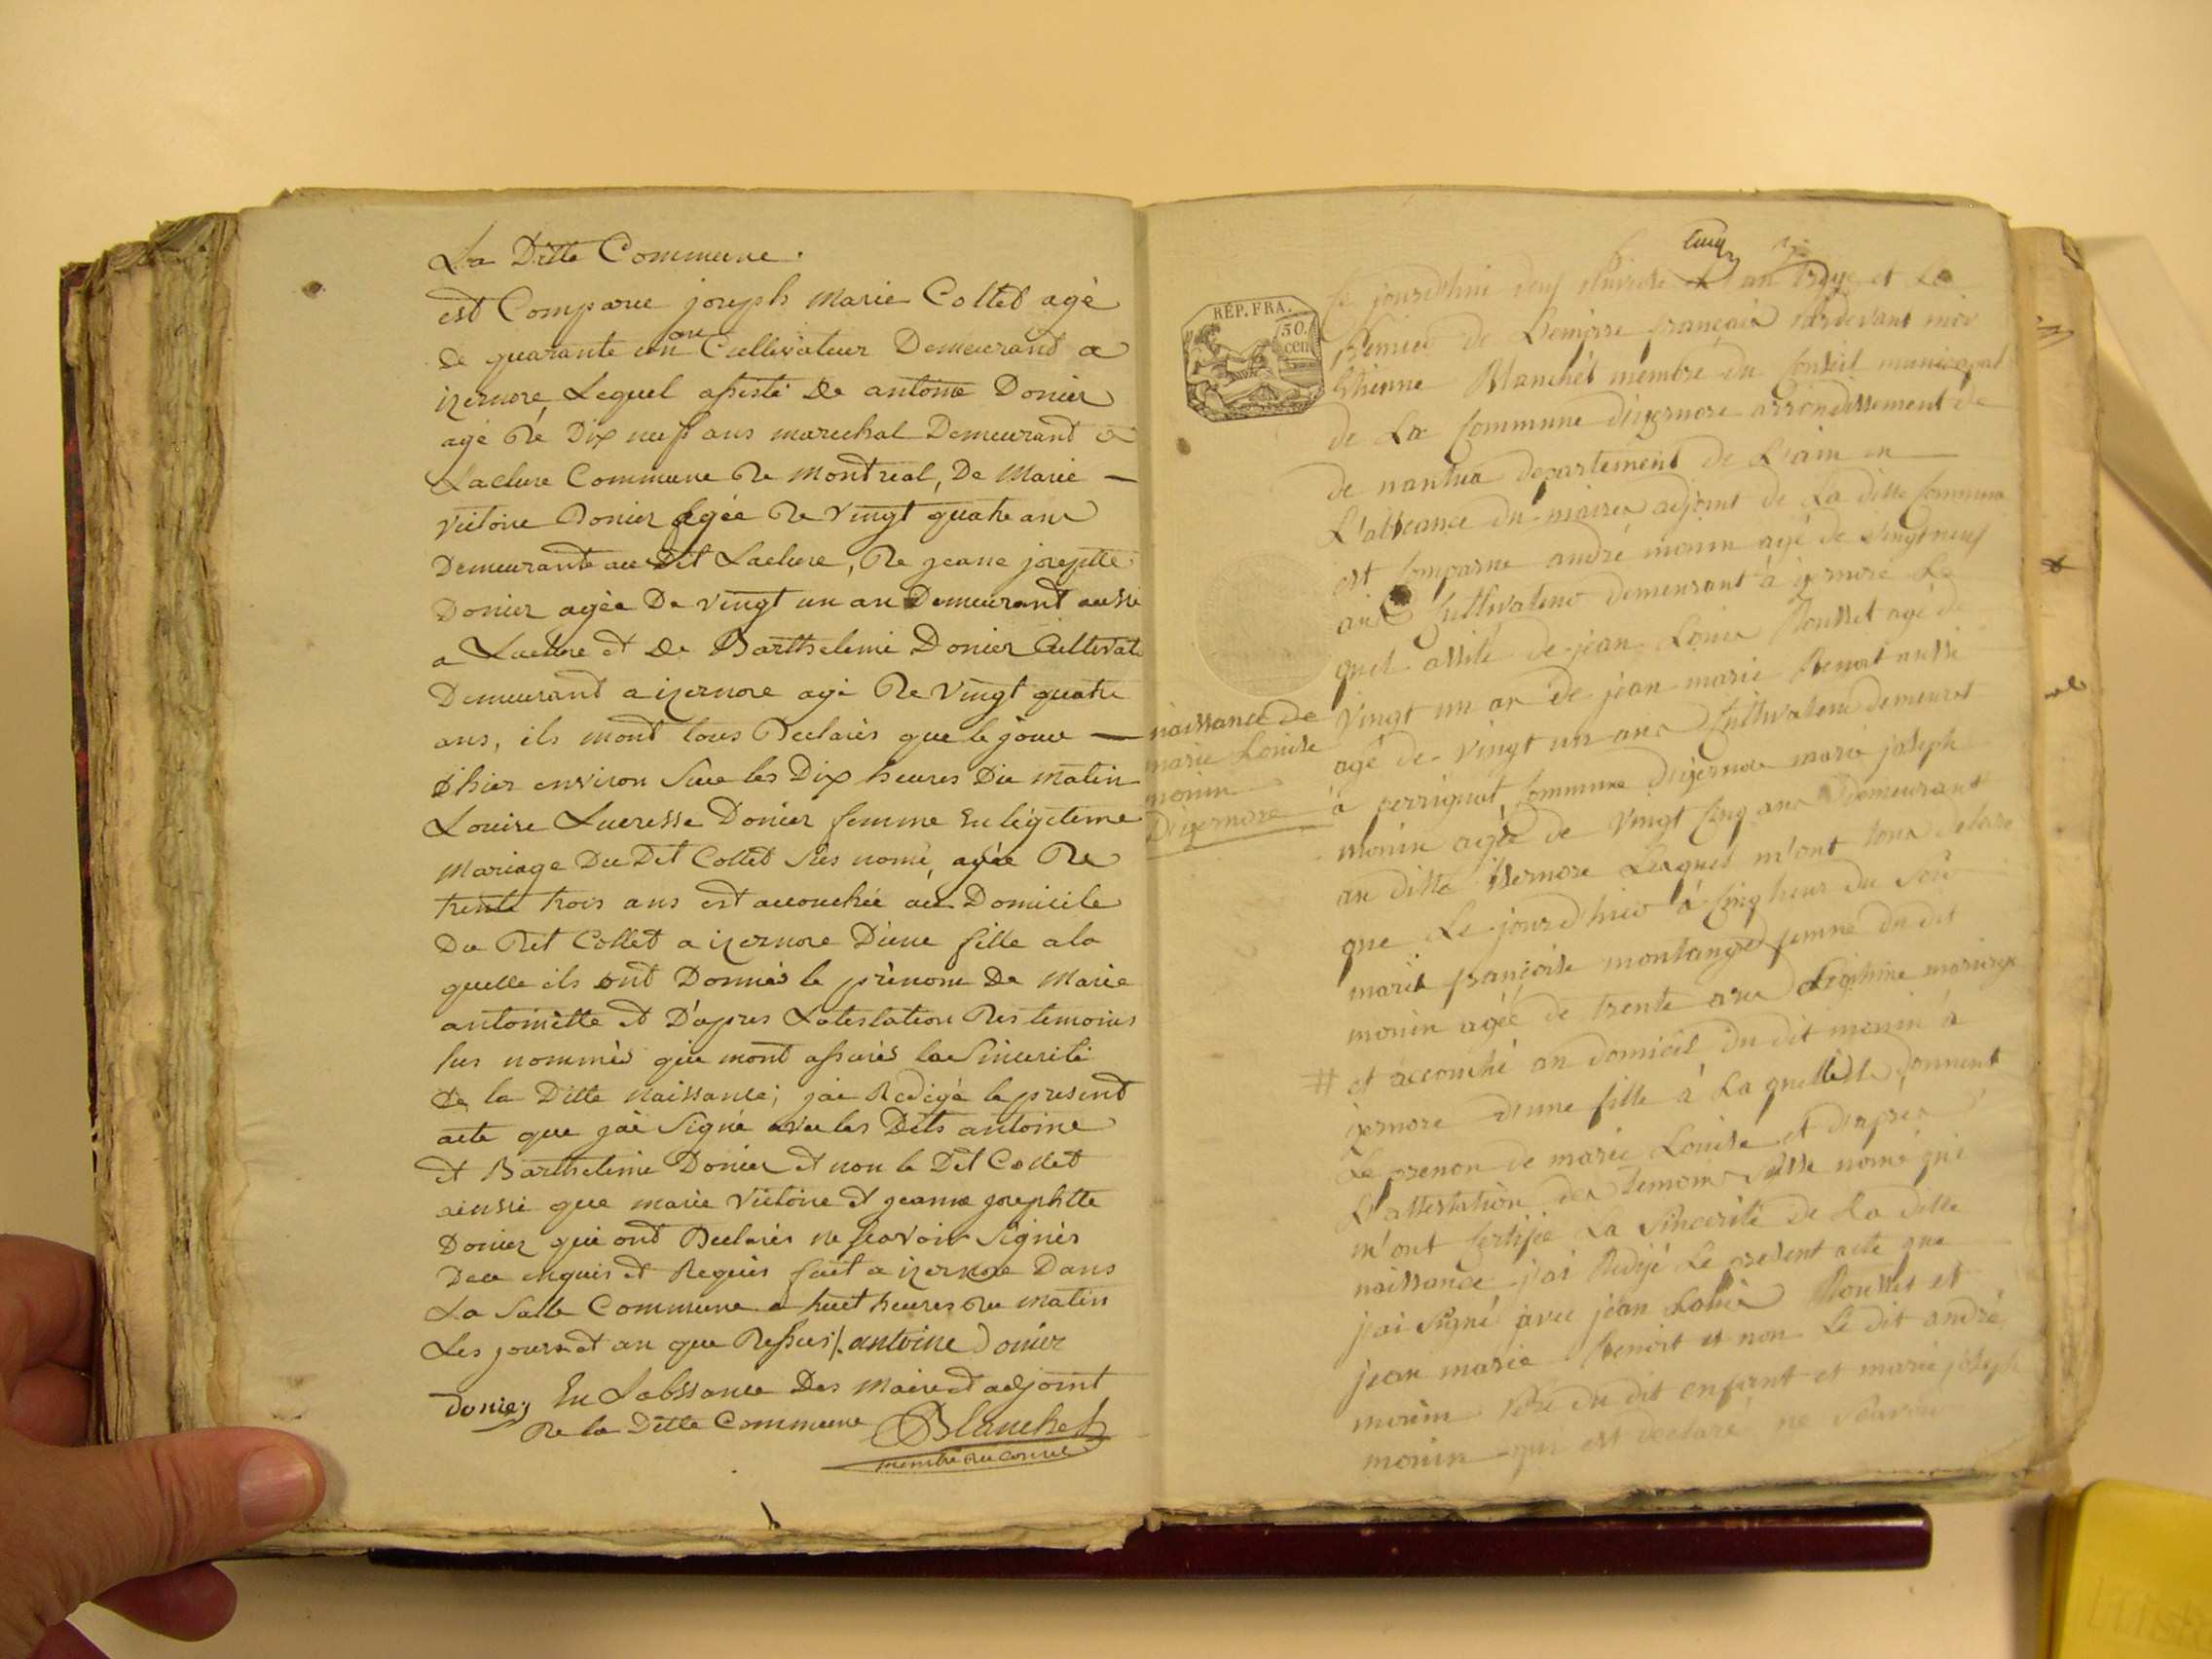 La Ditte Commune.
est Comparue joseph Marie Collet agé
de quarante un Cultivateur Demeurant a
izernore, Lequel assisté De antoine Donier
agé De Dix neuf ans marechal Demeurant a
Laclure Commune De Montreal, De Marie —
Victoire Donier agée De Vingt quatre ans
Demeurante au Dit Laclure, De jeane josepte
Donier agée De vingt un an Demeurant aussi
a Laclure et De Barthelemi Donier Cultivat
Demeurant a izernore agé De Vingt quatre
ans, ils mont tous Declarés que le jour —
d'hier environ Sur les Dix heures Du Matin
Louise Lucresse Donier femme En légitime
Mariage Du Dit Collet sus nomé, agée De
trente trois ans est accouchée au Domicile
Du Dit Collet a izernore D'une fille a la
quelle ils ont Donnés le prénom De Marie
antoinette et D'apres Latestation Des temoins
sus nommés qui mont assurés la Sincerité
De la Ditte Naissance; jai Redigé le present
acte que jai Signé avec les Dits antoine
et Barthelemie Donier et non le Dit Collet
ainssi que marie Victoire et jeanne josephtte
Donier qui ont Declarés ne scavoir Signés
De ce enquis et Requis fait a izernore Dans
La Salle Commune a huit heures Du Matin
Les jours et an que Dessus/. antoine Donier
Donier En Labssance Des Maire et adjoint
De la Ditte Commune Blanchet
membre du Conseil
RÉP. FRA.
50. cen
cinq
Ce jourd'hui neuf pluviose an treze et Le
premier de Lempire français pardevant moi
Etienne Blanchet membre du Conseil municipal
de La Commune d'izernore arrondissement de
de nantua departement de L'ain en
L'absance du maire adjoint de La ditte Commune
est Comparue andré monin agé de Vingt neuf
ans Cultivateur demeurant à izernore Le
quel assité de jean Louis Rousset agé de
vingt un an de jean marie Benoit aussi
agé de vingt un ans Cultivateur demeurt
à perrignat Commune d'izernore marie joseph
monin agée de Vingt Cinq ans Demeurant
au ditte izernore Lesquels m'ont tous declaré
que Le jour d'hier à Cinq heur du soir
marie françoise montange femme du dit
monin agée de trente ans Légitime mariage
# et accouché au domicil du dit monin à
izernore d'une fille à La quelle donnent
Le prenon de marie Louise et d'apres
L'attestation des temoins susse nomé qui
m'ont Certifié La Sincerité de La ditte
naissance j'ai Redijé Le present acte que
j'ai Signé avec jean Louis Rousset et
jean marie Benoit et non Le dit andré
monin Père du dit enfant et marie joseph
monin qui ont declaré ne Scavoir
naissance de
marie Louise
monin
D'izernore